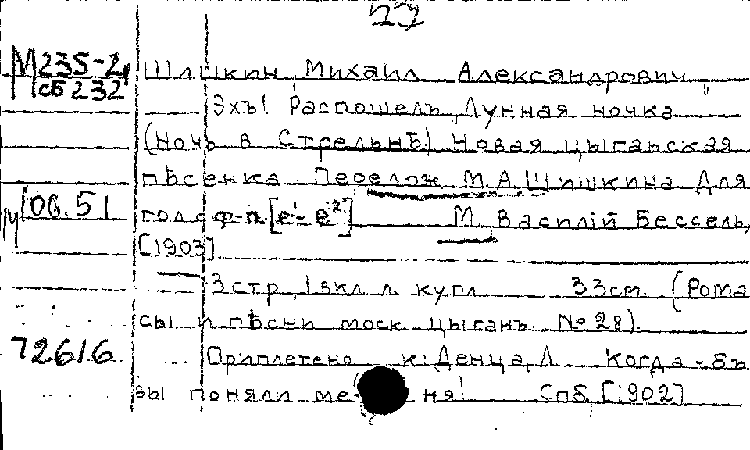 22
М235-2 Шишкин, Михаил Александрович
Iсб232
Эхъ! Распошелъ, Лунная ночка
(Ночь в Стрельнѣ) Новая цыганская
пѣсенка Перелож М.А.Шишкина Для
М100.51 голос ф-п [e¹-e²] М. Василій Бессель,
[1903]
3стр, 1вкл л кугл 33см (Рома
сы и пѣсни моск цыганъ №28).
72616 Приплетено к: Денца, Л Когда-бъ
вы поняли меня! Спб [1902]